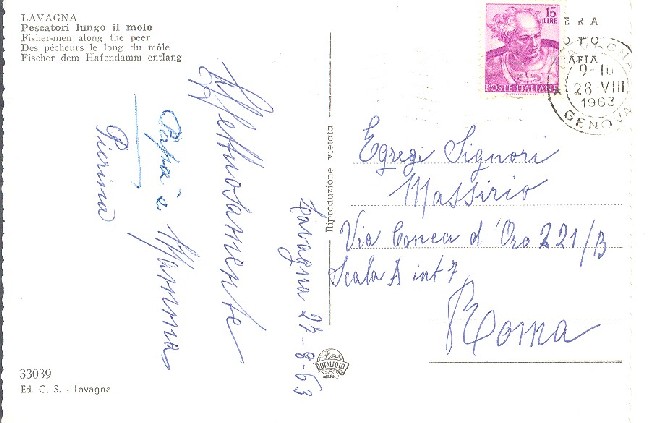 LAVAGNA
Pescatori lungo il molo
Fishermen along the peer
Des pêcheurs le long du môle
Fischer dem Hafendamm entlang
Affettuosamente
Papà e Mamma
Pierina
Lavagna 27-8-63
Riproduzione vietata
15
LIRE
POSTE ITALIANE
9-10
28 VIII
1963
GENOVA
Egregi Signori
Massirio
Via Conca d'Oro 221/B
Scala A int 7
Roma
33039
Ed. C. S. - Lavagna